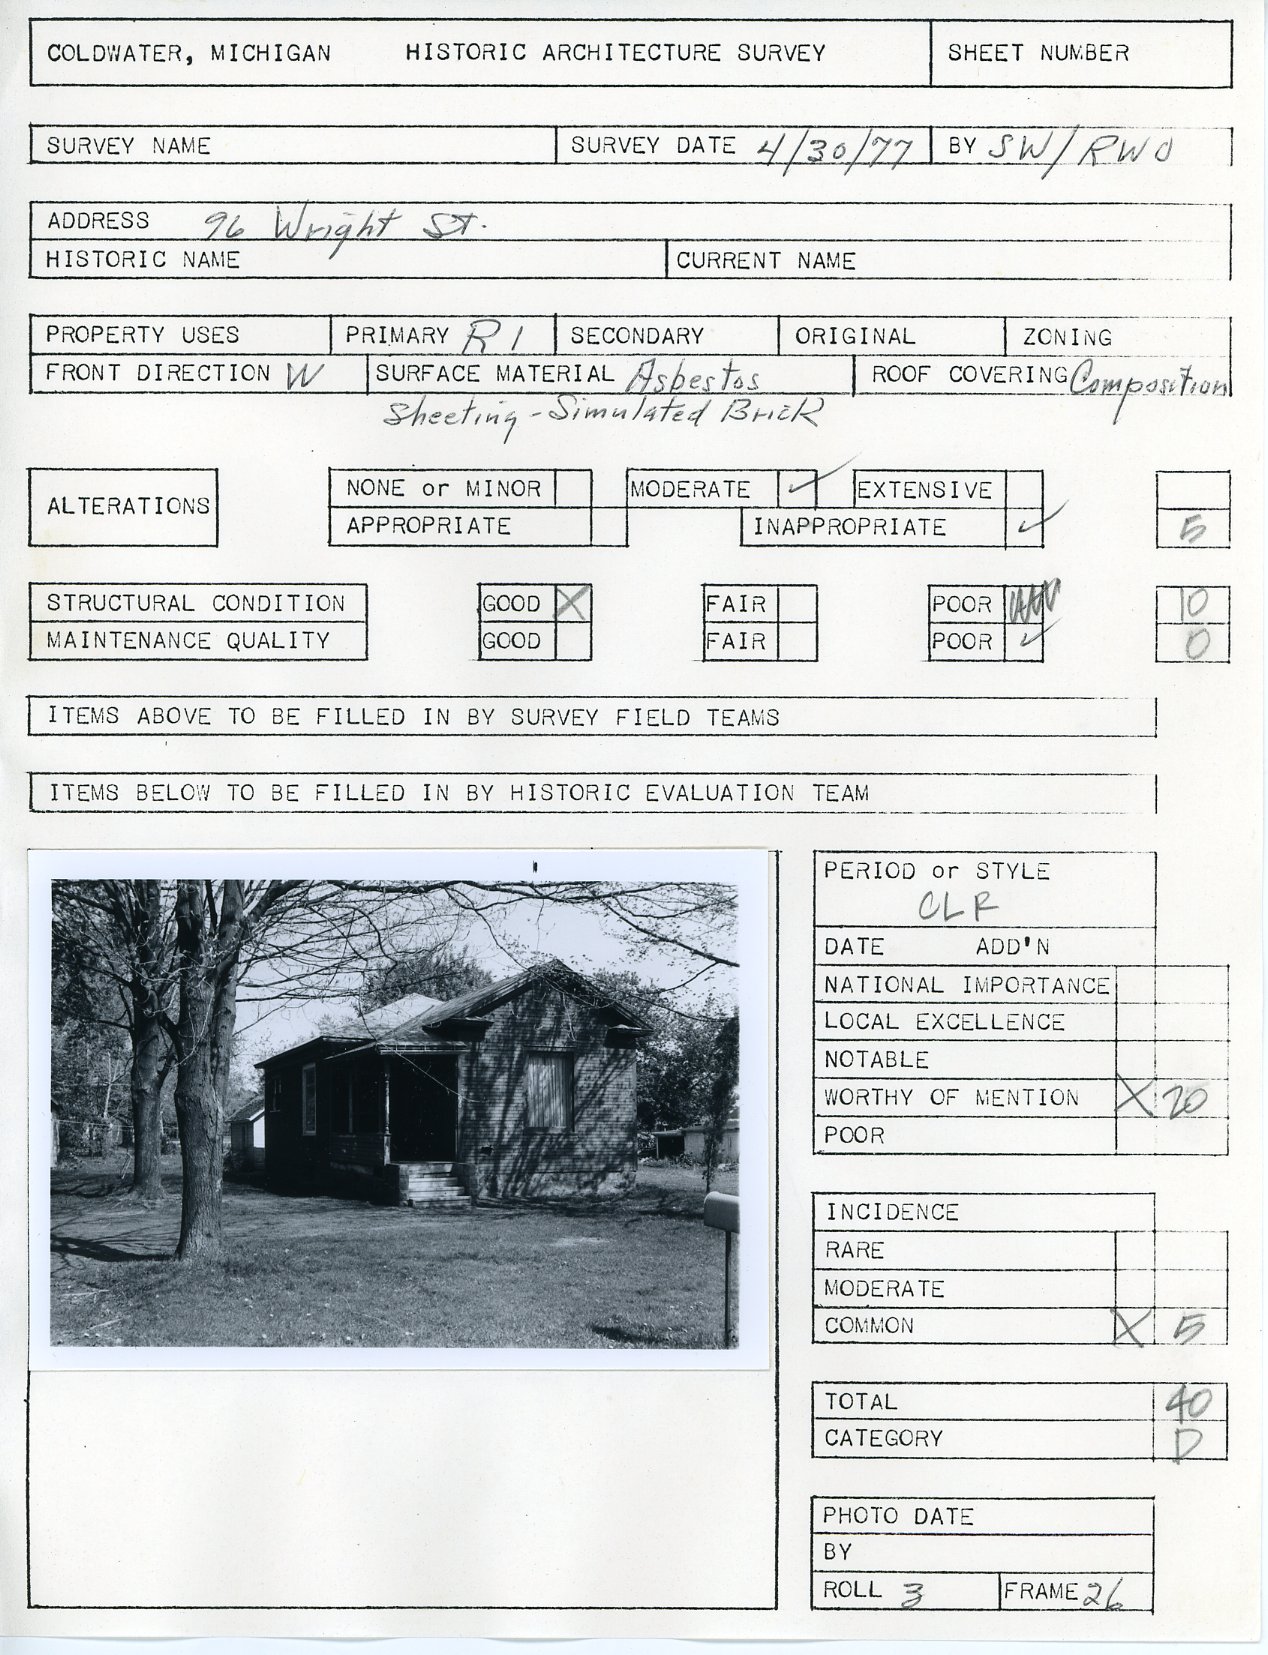 COLDWATER, MICHIGAN HISTORIC ARCHITECTURE SURVEY SHEET NUMBER
SURVEY NAME SURVEY DATE 4/30/77 BY SW/RWO
ADDRESS 96 Wright St.
HISTORIC NAME CURRENT NAME
PROPERTY USES PRIMARY R1 SECONDARY ORIGINAL ZONING
FRONT DIRECTION W SURFACE MATERIAL Asbestos ROOF COVERING Composition
Sheeting - Simulated Brick
ALTERATIONS
NONE or MINOR MODERATE ✓ EXTENSIVE
APPROPRIATE INAPPROPRIATE ✓ 5
STRUCTURAL CONDITION GOOD X FAIR POOR 10
MAINTENANCE QUALITY GOOD FAIR POOR ✓ 0
ITEMS ABOVE TO BE FILLED IN BY SURVEY FIELD TEAMS
ITEMS BELOW TO BE FILLED IN BY HISTORIC EVALUATION TEAM
PERIOD or STYLE
CLR
DATE ADD'N
NATIONAL IMPORTANCE
LOCAL EXCELLENCE
NOTABLE
WORTHY OF MENTION X 20
POOR
INCIDENCE
RARE
MODERATE
COMMON X 5
TOTAL 40
CATEGORY D
PHOTO DATE
BY
ROLL 3 FRAME 26